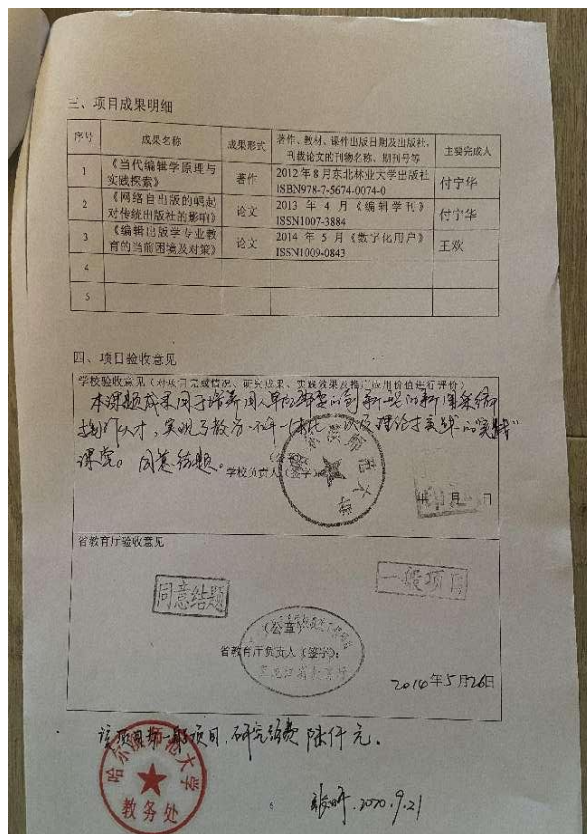 三、项目成果明细
序号 成果名称 成果形式 著作、教材、课件出版日期及出版社、刊载论文的刊物名称、期刊号等 主要完成人
1 《当代编辑学原理与实践探索》 著作 2012年8月东北林业大学出版社 ISBN978-7-5674-0074-0 付宁华
2 《网络自出版的崛起对传统出版社的影响》 论文 2013年4月《编辑学刊》 ISSN1007-3884 付宁华
3 《编辑出版学专业教育的当前困境及对策》 论文 2014年5月《数字化用户》 ISSN1009-0843 王欢
4
5
四、项目验收意见
学校验收意见(对项目完成情况、研究成果、实践效果及推广应用价值进行评价)
本课题成果
人才,实现了教
课堂。同意结题。
(公章)
学校负责人(签字)
月 日
省教育厅验收意见
同意结题
一般项目
(公章)
省教育厅负责人(签字):
黑龙江省教育厅
2014年5月26日
该项目为一般项目,研究经费陆仟元。
哈尔滨师范大学
教务处
2020.9.21